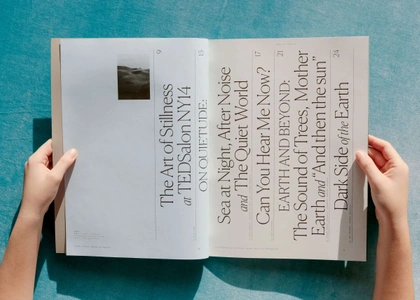 9
The Art of Stillness
at TEDSalon NY14
15
ON QUIETUDE:
Sea at Night, After Noise
and The Quiet World
17
Can You Hear Me Now?
21
EARTH AND BEYOND:
The Sound of Trees, Mother
Earth and “And then the sun”
24
Dark Side of the Earth